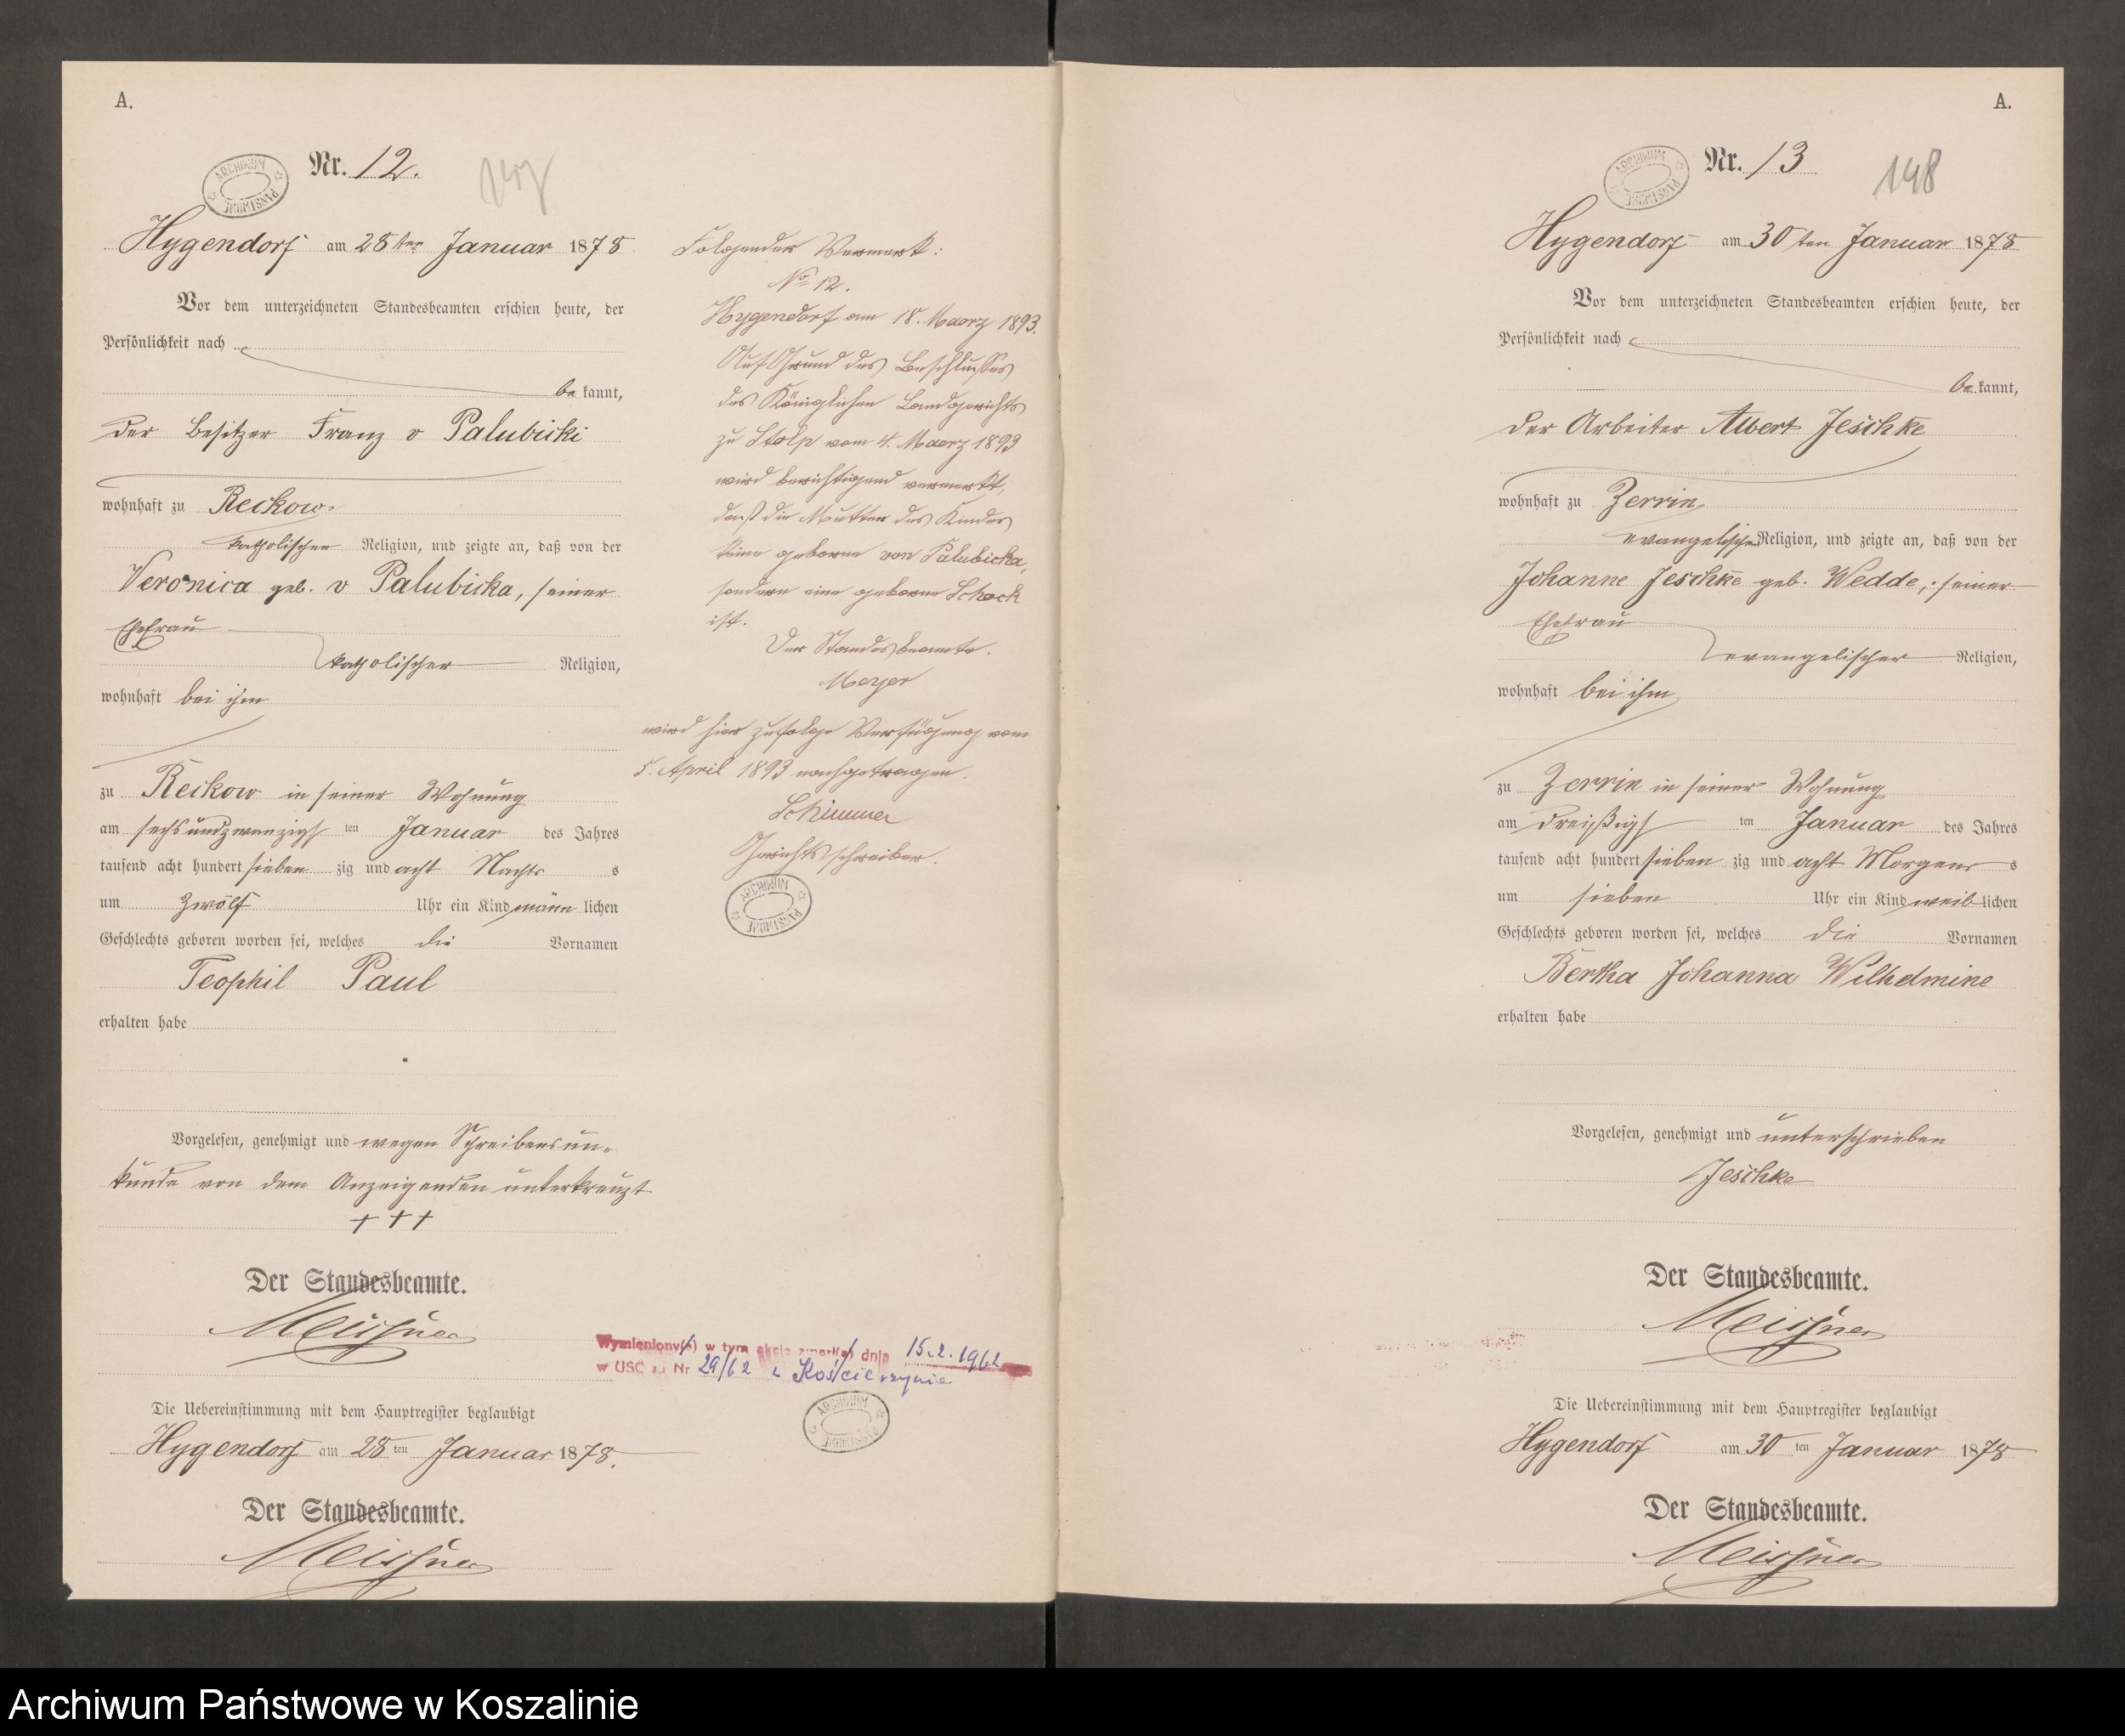 A.
Nr. 12.
Hygendorf am 28ten Januar 1878
Vor dem unterzeichneten Standesbeamten erschien heute, der
Persönlichkeit nach
be kannt,
der Besitzer Franz v Palubicki
wohnhaft zu Reckow
katholischer Religion, und zeigte an, daß von der
Veronica geb. v Palubicka, seiner
Ehefrau
katholischer Religion,
wohnhaft bei ihm
zu Reckow in seiner Wohnung
am sechsundzwanzigsten Januar des Jahres
tausend acht hundert sieben zig und acht Nachts
um zwölf Uhr ein Kind männ lichen
Geschlechts geboren worden sei, welches die Vornamen
Teophil Paul
erhalten habe
Vorgelesen, genehmigt und wegen Schreibensun-
kunde von dem Anzeigenden unterkreuzt
+++
Der Standesbeamte.
Meissner
Die Uebereinstimmung mit dem Hauptregister beglaubigt
Hygendorf am 28 ten Januar 1878.
Der Standesbeamte.
Meissner
Folgender Vermerk:
No 12.
Hygendorf am 18. Maerz 1893.
Auf Grund des Beschlusses
des Königlichen Landgerichts
zu Stolp vom 4. Maerz 1893
wird berichtigend vermerkt,
daß die Mutter des Kindes
keine geborne von Palubicka,
sondern eine geborne Schock
ist.
Der Standesbeamte.
Meyer
wird hier zufolge Verfügung vom
5. April 1893 nachgetragen.
Schimmer
Gerichtsschreiber.
ARCHIWUM PAŃSTWOWE
Wymieniony(a) w tym akcie zmarł(a) dnia 15.2.1962
w USC za Nr 29/62 w Kościerzynie
A.
Nr. 13
148
Hygendorf am 30 ten Januar 1878
Vor dem unterzeichneten Standesbeamten erschien heute, der
Persönlichkeit nach
be kannt,
der Arbeiter Albert Jeschke
wohnhaft zu Zerrin
evangelischer Religion, und zeigte an, daß von der
Johanne Jeschke geb. Wedde, seiner
Ehefrau
evangelischer Religion,
wohnhaft bei ihm
zu Zerrin in seiner Wohnung
am dreißigsten Januar des Jahres
tausend acht hundert sieben zig und acht Morgens
um sieben Uhr ein Kind weib lichen
Geschlechts geboren worden sei, welches die Vornamen
Bertha Johanna Wilhelmine
erhalten habe
Vorgelesen, genehmigt und unterschrieben
Jeschke
Der Standesbeamte.
Meissner
Die Uebereinstimmung mit dem Hauptregister beglaubigt
Hygendorf am 30 ten Januar 1878
Der Standesbeamte.
Meissner
Archiwum Państwowe w Koszalinie